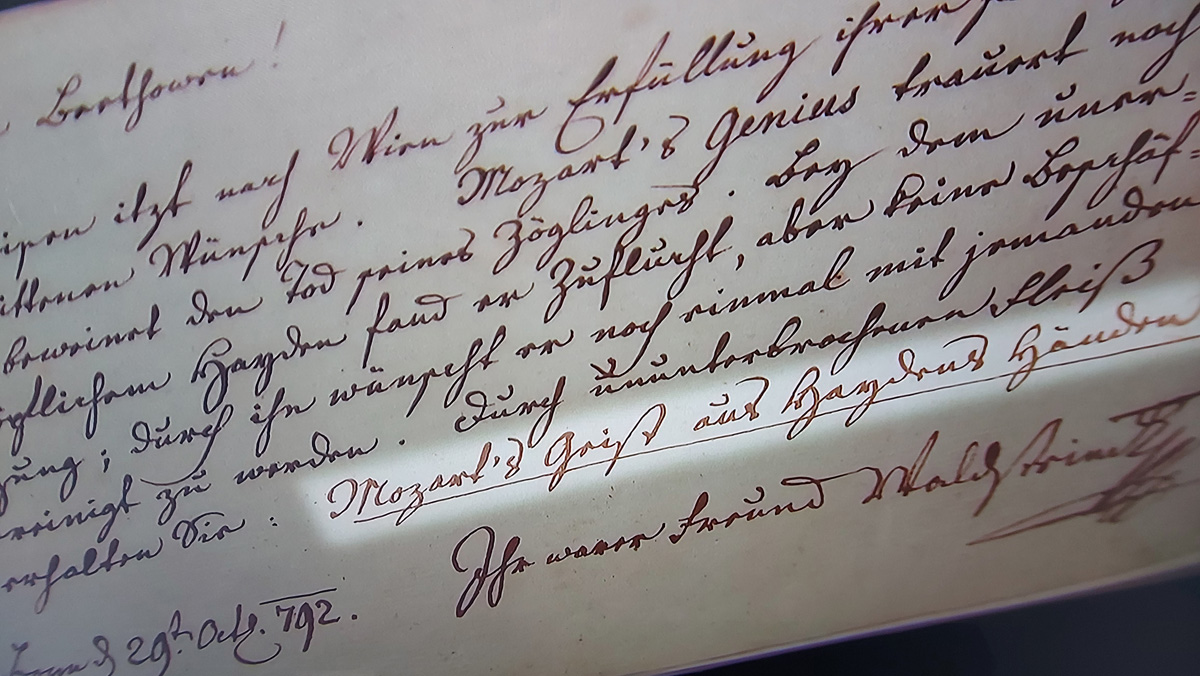 Beethowen!
itzt nach Wien zur Erfüllung ihrer
Wünsche. Mozart's Genius trauert noch
beweinet den Tod seines Zöglinges. Bey dem uner=
Hayden fand er Zuflucht, aber keine Beschäf=
; durch ihn wünscht er noch einmal mit jemanden
zu werden. Durch ununterbrochenen Fleiß
erhalten Sie: Mozart's Geist aus Haydens Händen
Ihr warer Freund Waldstein
d 29t. Octb. 792.